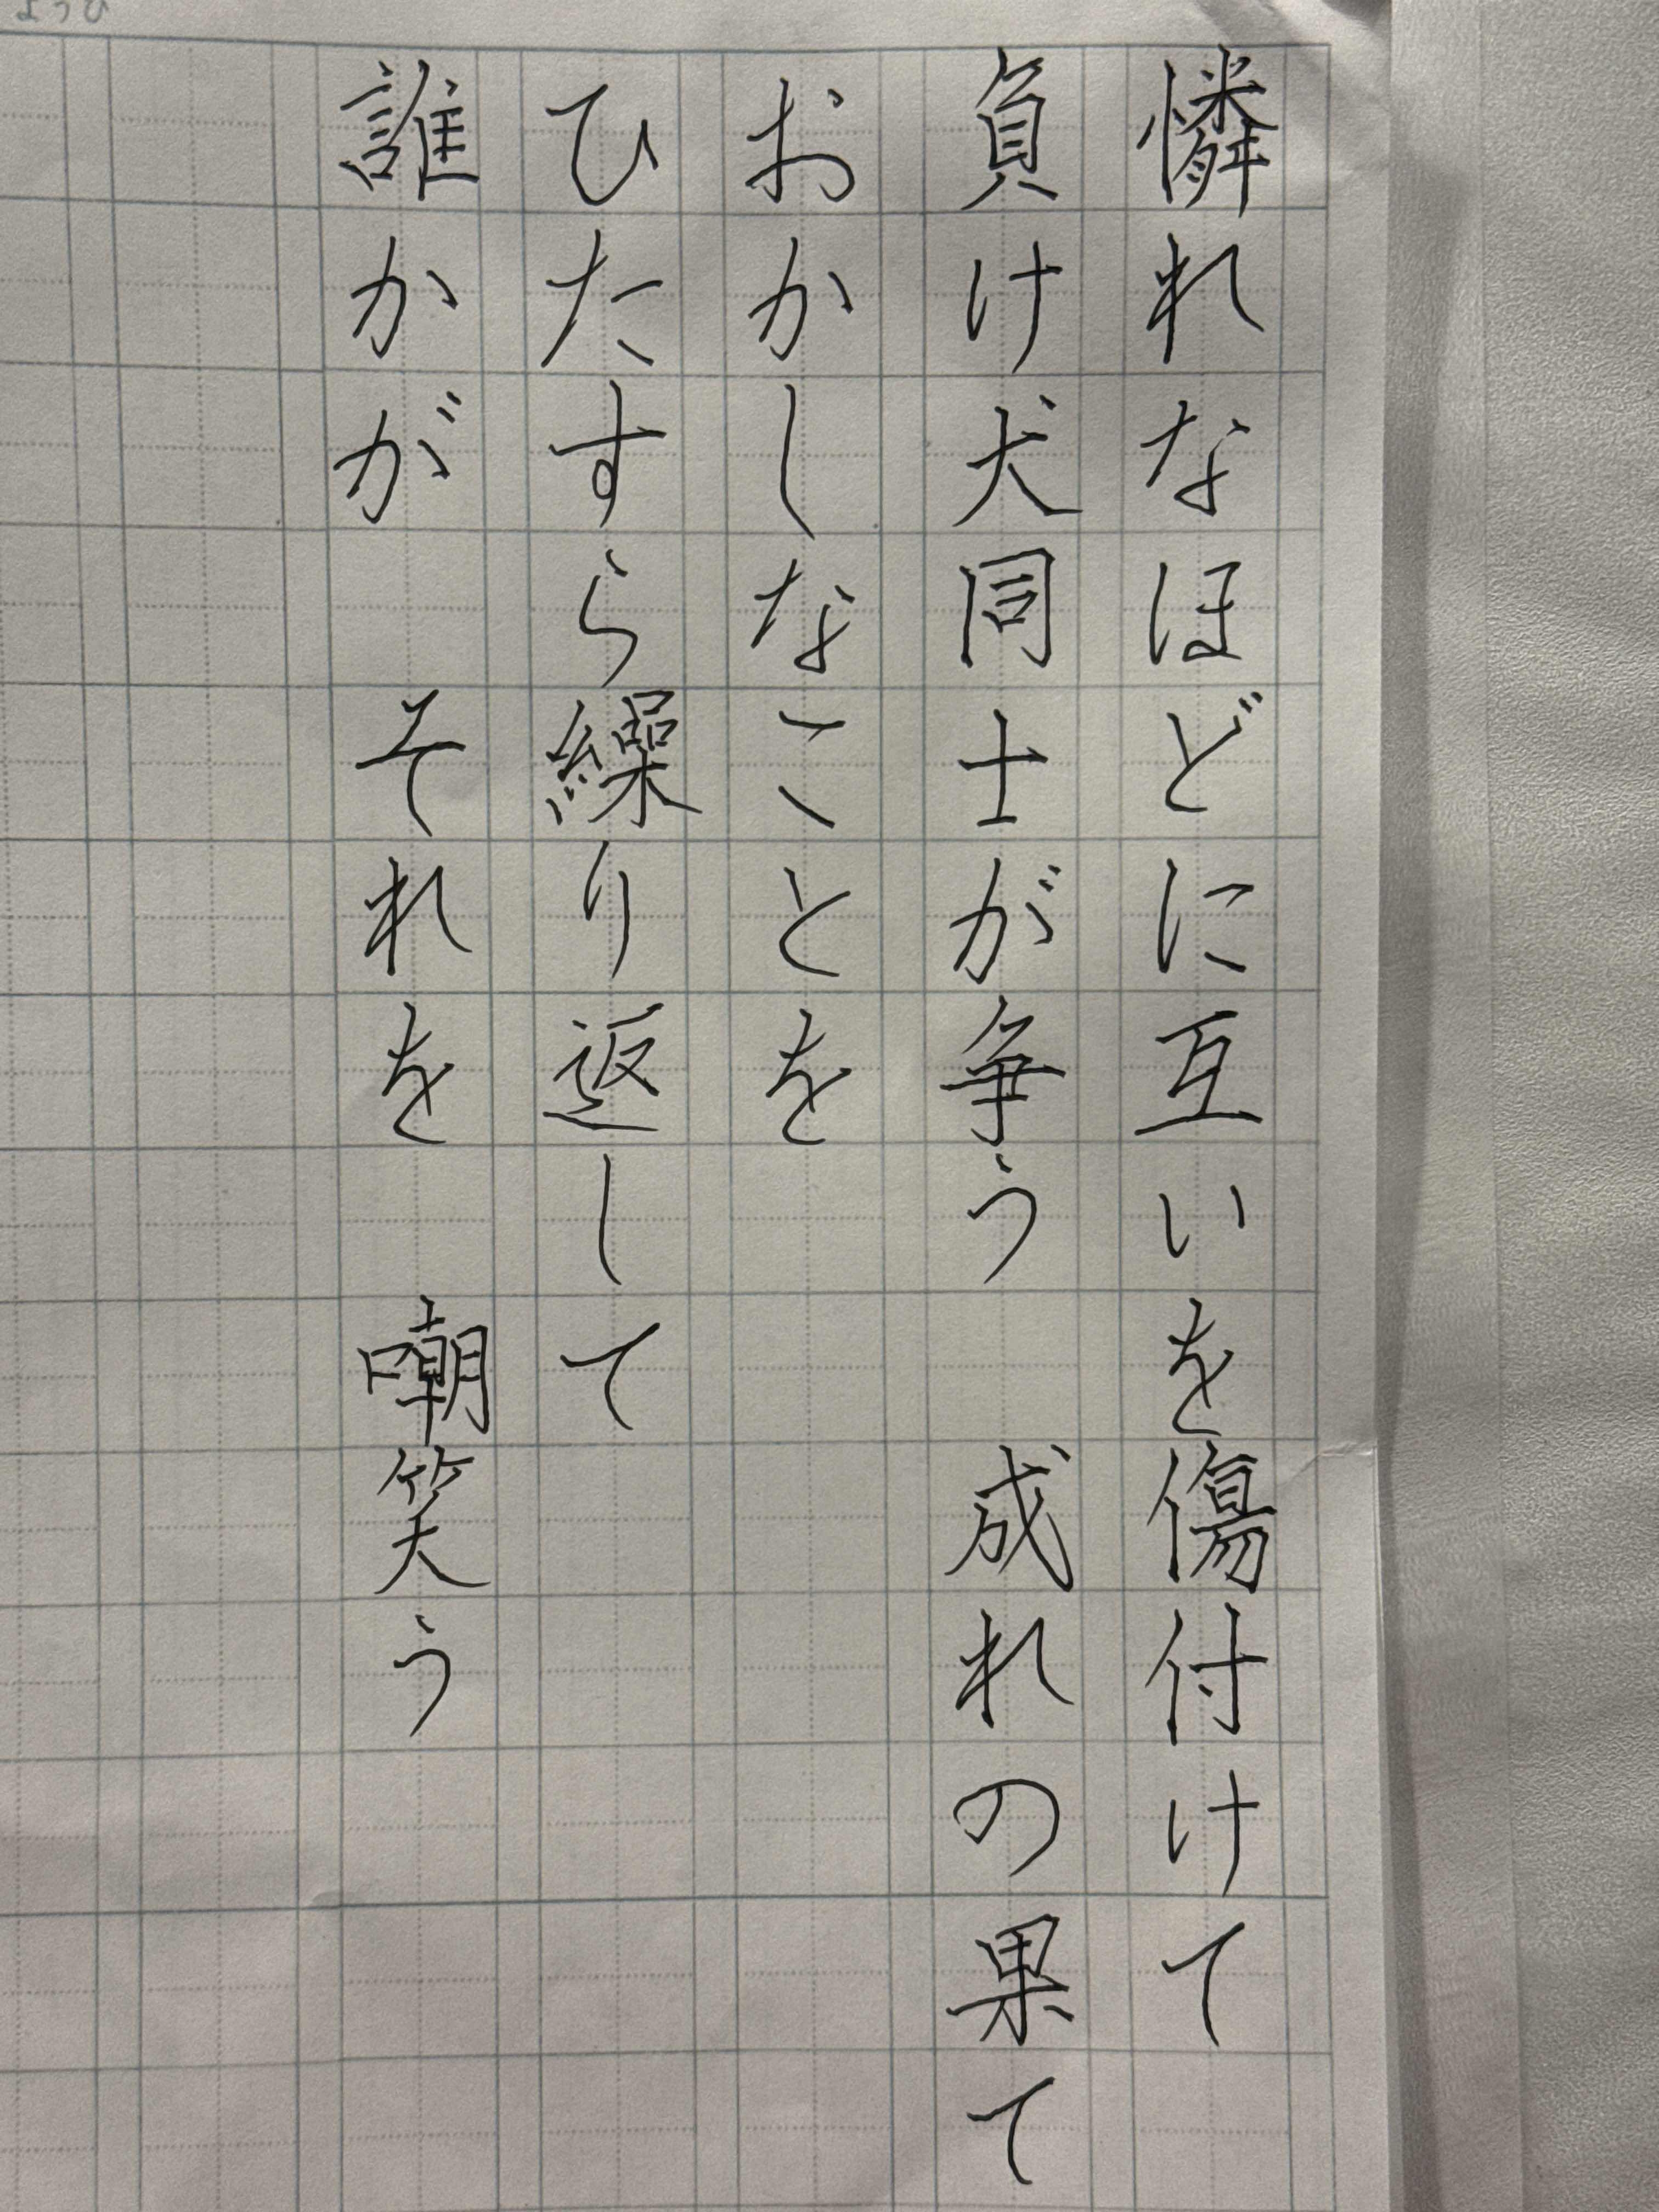 憐れなほどに互いを傷付けて
負け犬同士が争う　成れの果て
おかしなことを
ひたすら繰り返して
誰かが　それを　嘲笑う